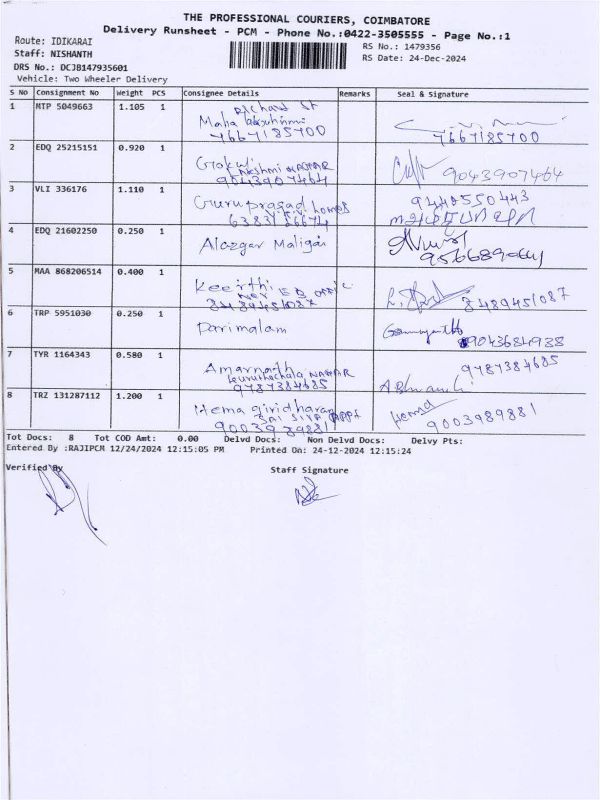 THE PROFESSIONAL COURIERS, COIMBATORE
Delivery Runsheet - PCM - Phone No.:0422-3505555 - Page No.:1
Route: IDIKARAI
RS No.: 1479356
Staff: NISHANTH
RS Date: 24-Dec-2024
DRS No.: DCJB147935601
Vehicle: Two Wheeler Delivery
S No Consignment No Weight PCS Consignee Details Remarks Seal & Signature
1 MTP 5049663 1.105 1 Richard St
Maha
7667185700 7667185700
2 EDQ 25215151 0.920 1 Gokul
NAGAR
9043907464 9043907464
3 VLI 336176 1.110 1 Guru prasad homes 9440550443
4 EDQ 21602250 0.250 1 Alazgar Maligai
5 MAA 868206514 0.400 1 Keerthi
8489451087 8489451087
6 TRP 5951030 0.250 1 Parimalam
9043684938
7 TYR 1164343 0.580 1 Amarnath 9787384685
NAGAR
9787384685
8 TRZ 131287112 1.200 1 Hema giridharan Hema
SAI SIVA APPT
9003989881 9003989881
Tot Docs: 8 Tot COD Amt: 0.00 Delvd Docs: Non Delvd Docs: Delvy Pts:
Entered By :RAJIPCM 12/24/2024 12:15:05 PM Printed On: 24-12-2024 12:15:24
Verified By Staff Signature